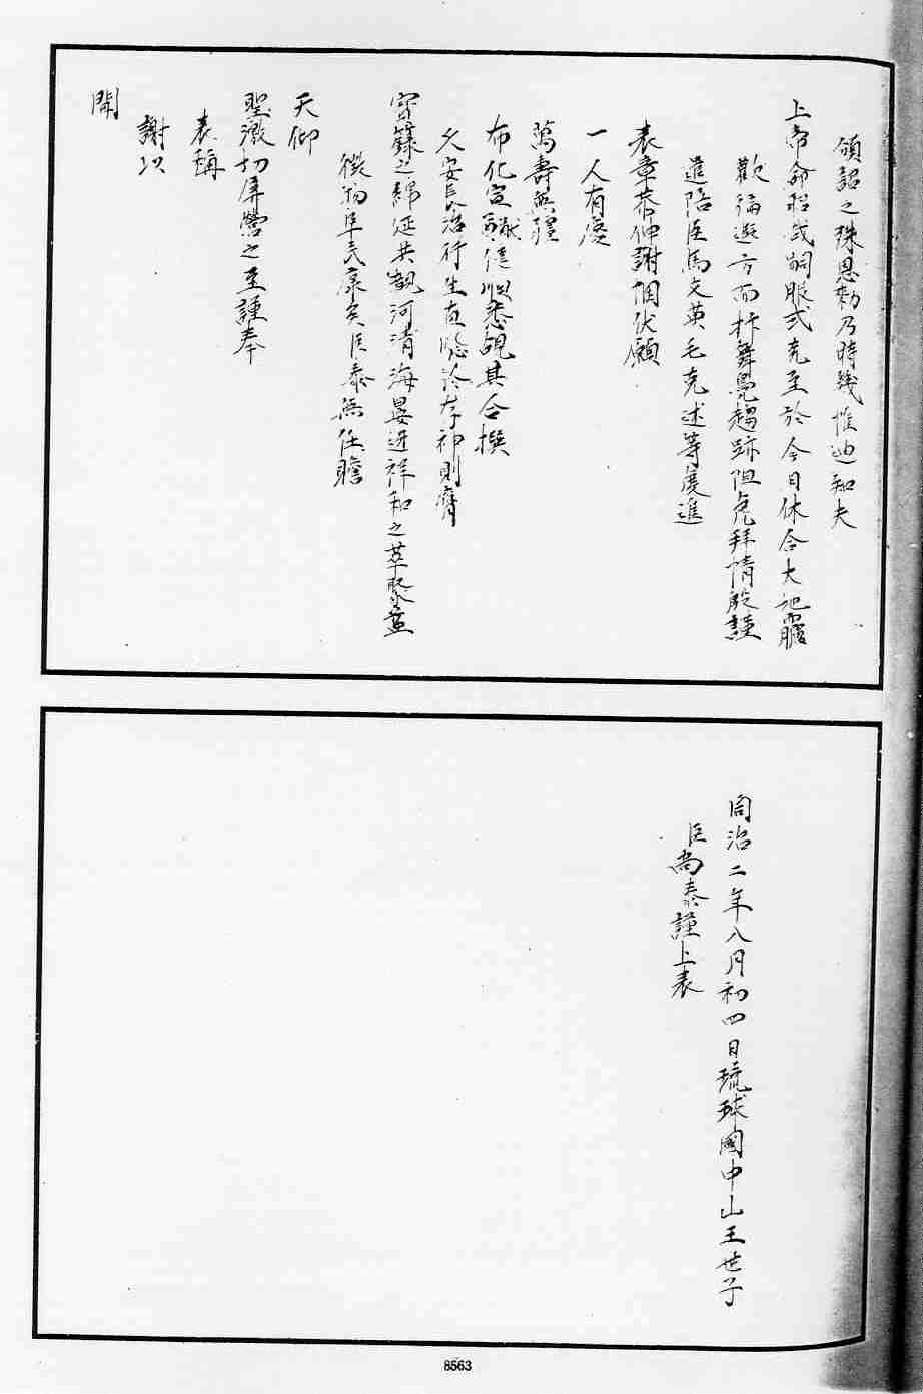 頒詔之殊恩勅乃時幾惟迪知夫
上帝命昭哉嗣服式克至於今日休合大地臚
歡徧遐方而抃舞鳧趨跡阻虎拜情殷謹
遣陪臣馬文英毛克述等虔進
表章恭伸謝悃伏願
一人有慶
萬壽無疆
布化宣猷
久安長治行生直
寶籙之綿延共覩河清海晏迓祥和之萃聚
物阜民康矣臣泰無任瞻
天仰
聖激切屏營之至謹奉
表稱
謝以
聞
同治二年八月初四日琉球國中山王世子
臣尚泰謹上表
8563